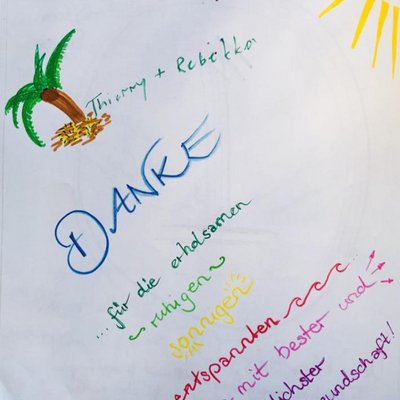 Thierry + Rebekka
DANKE
... für die erholsamen
ruhigen
sonnigen
entspannten
mit bester und